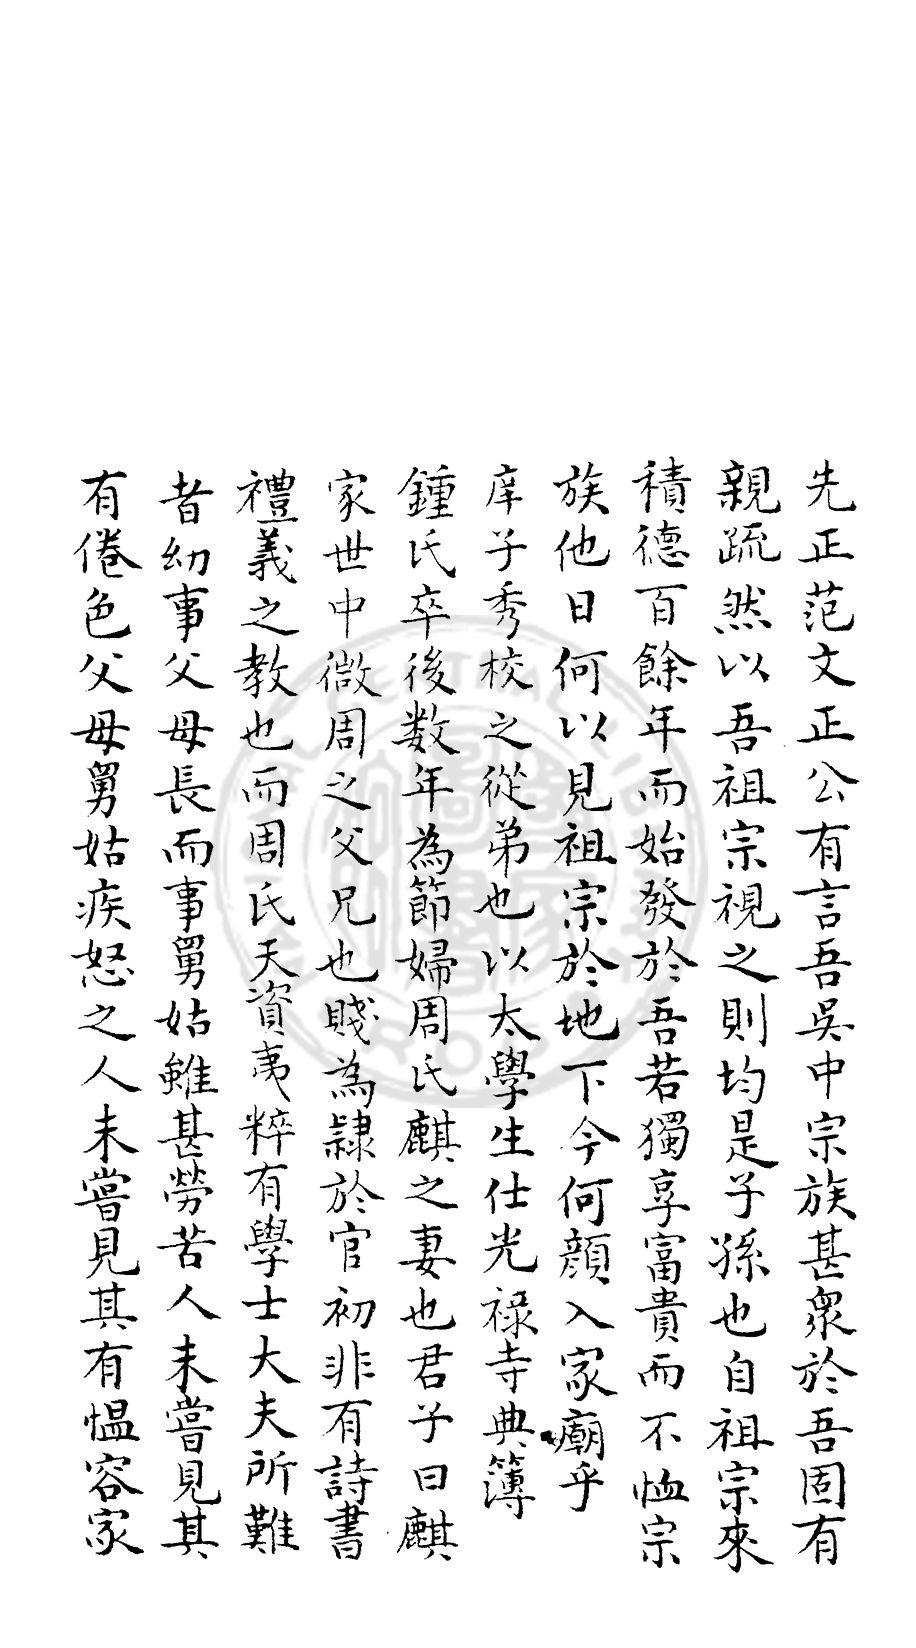 先正范文正公有言吾吳中宗族甚衆於吾固有
親疏然以吾祖宗視之則均是子孫也自祖宗來
積德百餘年而始發於吾若獨享富貴而不恤宗
族他日何以見祖宗於地下今何顏入家廟乎
庠子秀校之從弟也以太學生仕光禄寺典簿
鍾氏卒後数年為節婦周氏麒之妻也君子曰麒
家世中微周之父兄也賤為隷於官初非有詩書
禮義之教也而周氏天資夷粹有學士大夫所難
者幼事父母長而事舅姑雖甚勞苦人未嘗見其
有倦色父母舅姑疾怒之人未嘗見其有愠容家